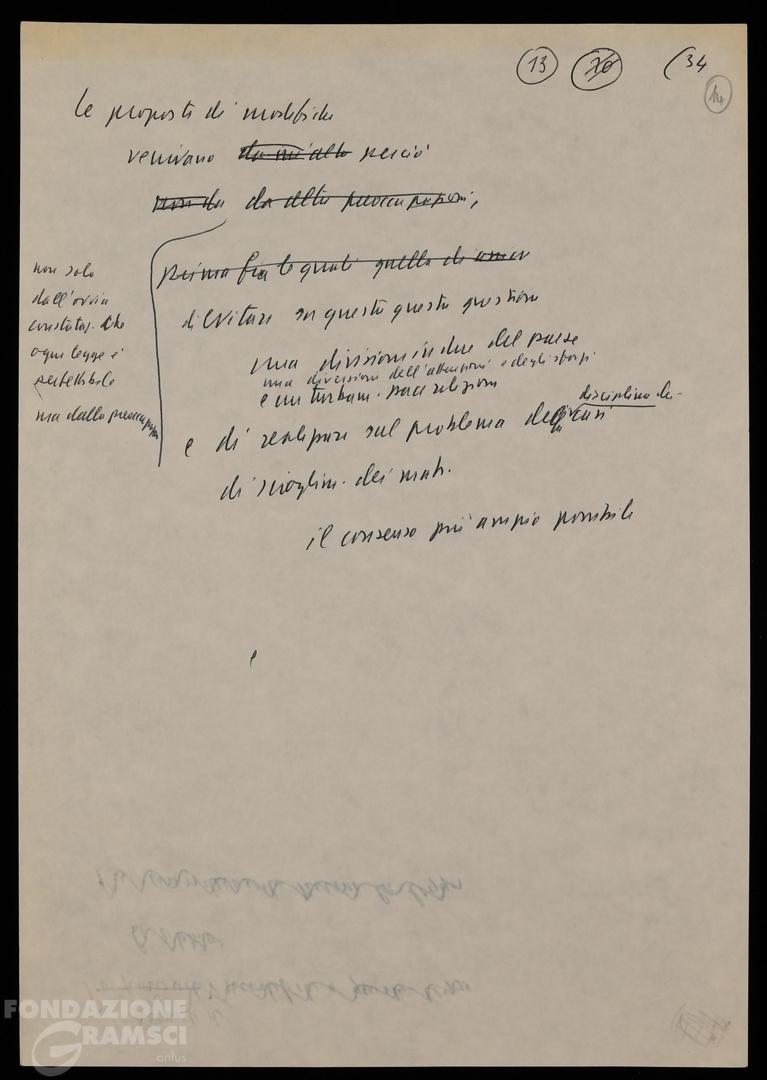 13 70 (34
14
le proposte di modifiche
venivano da un'alto perciò
non da da altre preoccupazioni,
prima fra le quali quella di
non solo
dall'ovvia
constataz. che
ogni legge è
perfettibile
ma dalla preoccupaz.
di evitare su questo questa questione
una divisione in due del paese
una diversione dell'attenzione e degli sforzi
e un turbam. pace religiosa
e di realizzare sul problema dei casi
disciplina dei
di scioglim. dei matr.
il consenso più ampio possibile
e
FONDAZIONE
GRAMSCI
onlus